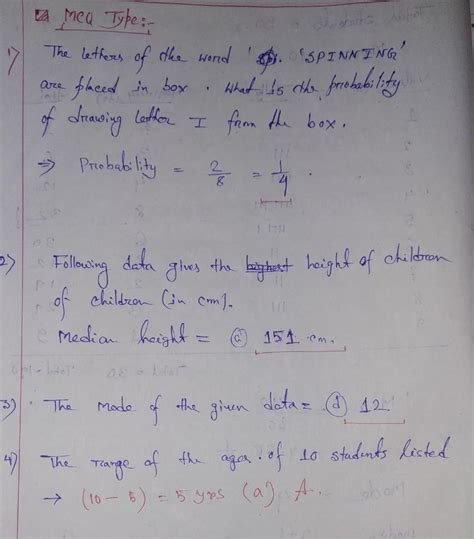 MCQ Type:-
1) The letters of the word 'SPINNING'
are placed in box. What is the probability
of drawing letter I from the box.
⇒ Probability = 2/8 = 1/4.
2) Following data gives the height of children
of children (in cm).
Median height = (a) 151 cm.
3) The mode of the given data = (d) 12
4) The range of the ages of 10 students listed
→ (10-5) = 5 yrs (a) A.